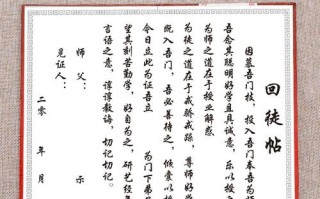 回徒帖
因慕吾门技，投入吾门奉吾为师
吾念其聪明好学且具诚意，乐以授之
为师之道在于授业解惑
为徒之道在于戒骄戒躁
既入吾门，吾必善待之，倾囊以授
今日立此为证吾立 为门下弟
望其刻苦勤学，好自为之，研艺经年
言语之意，谆谆教诲，切记切记。
师父： 示
见证人：
二零 年 月